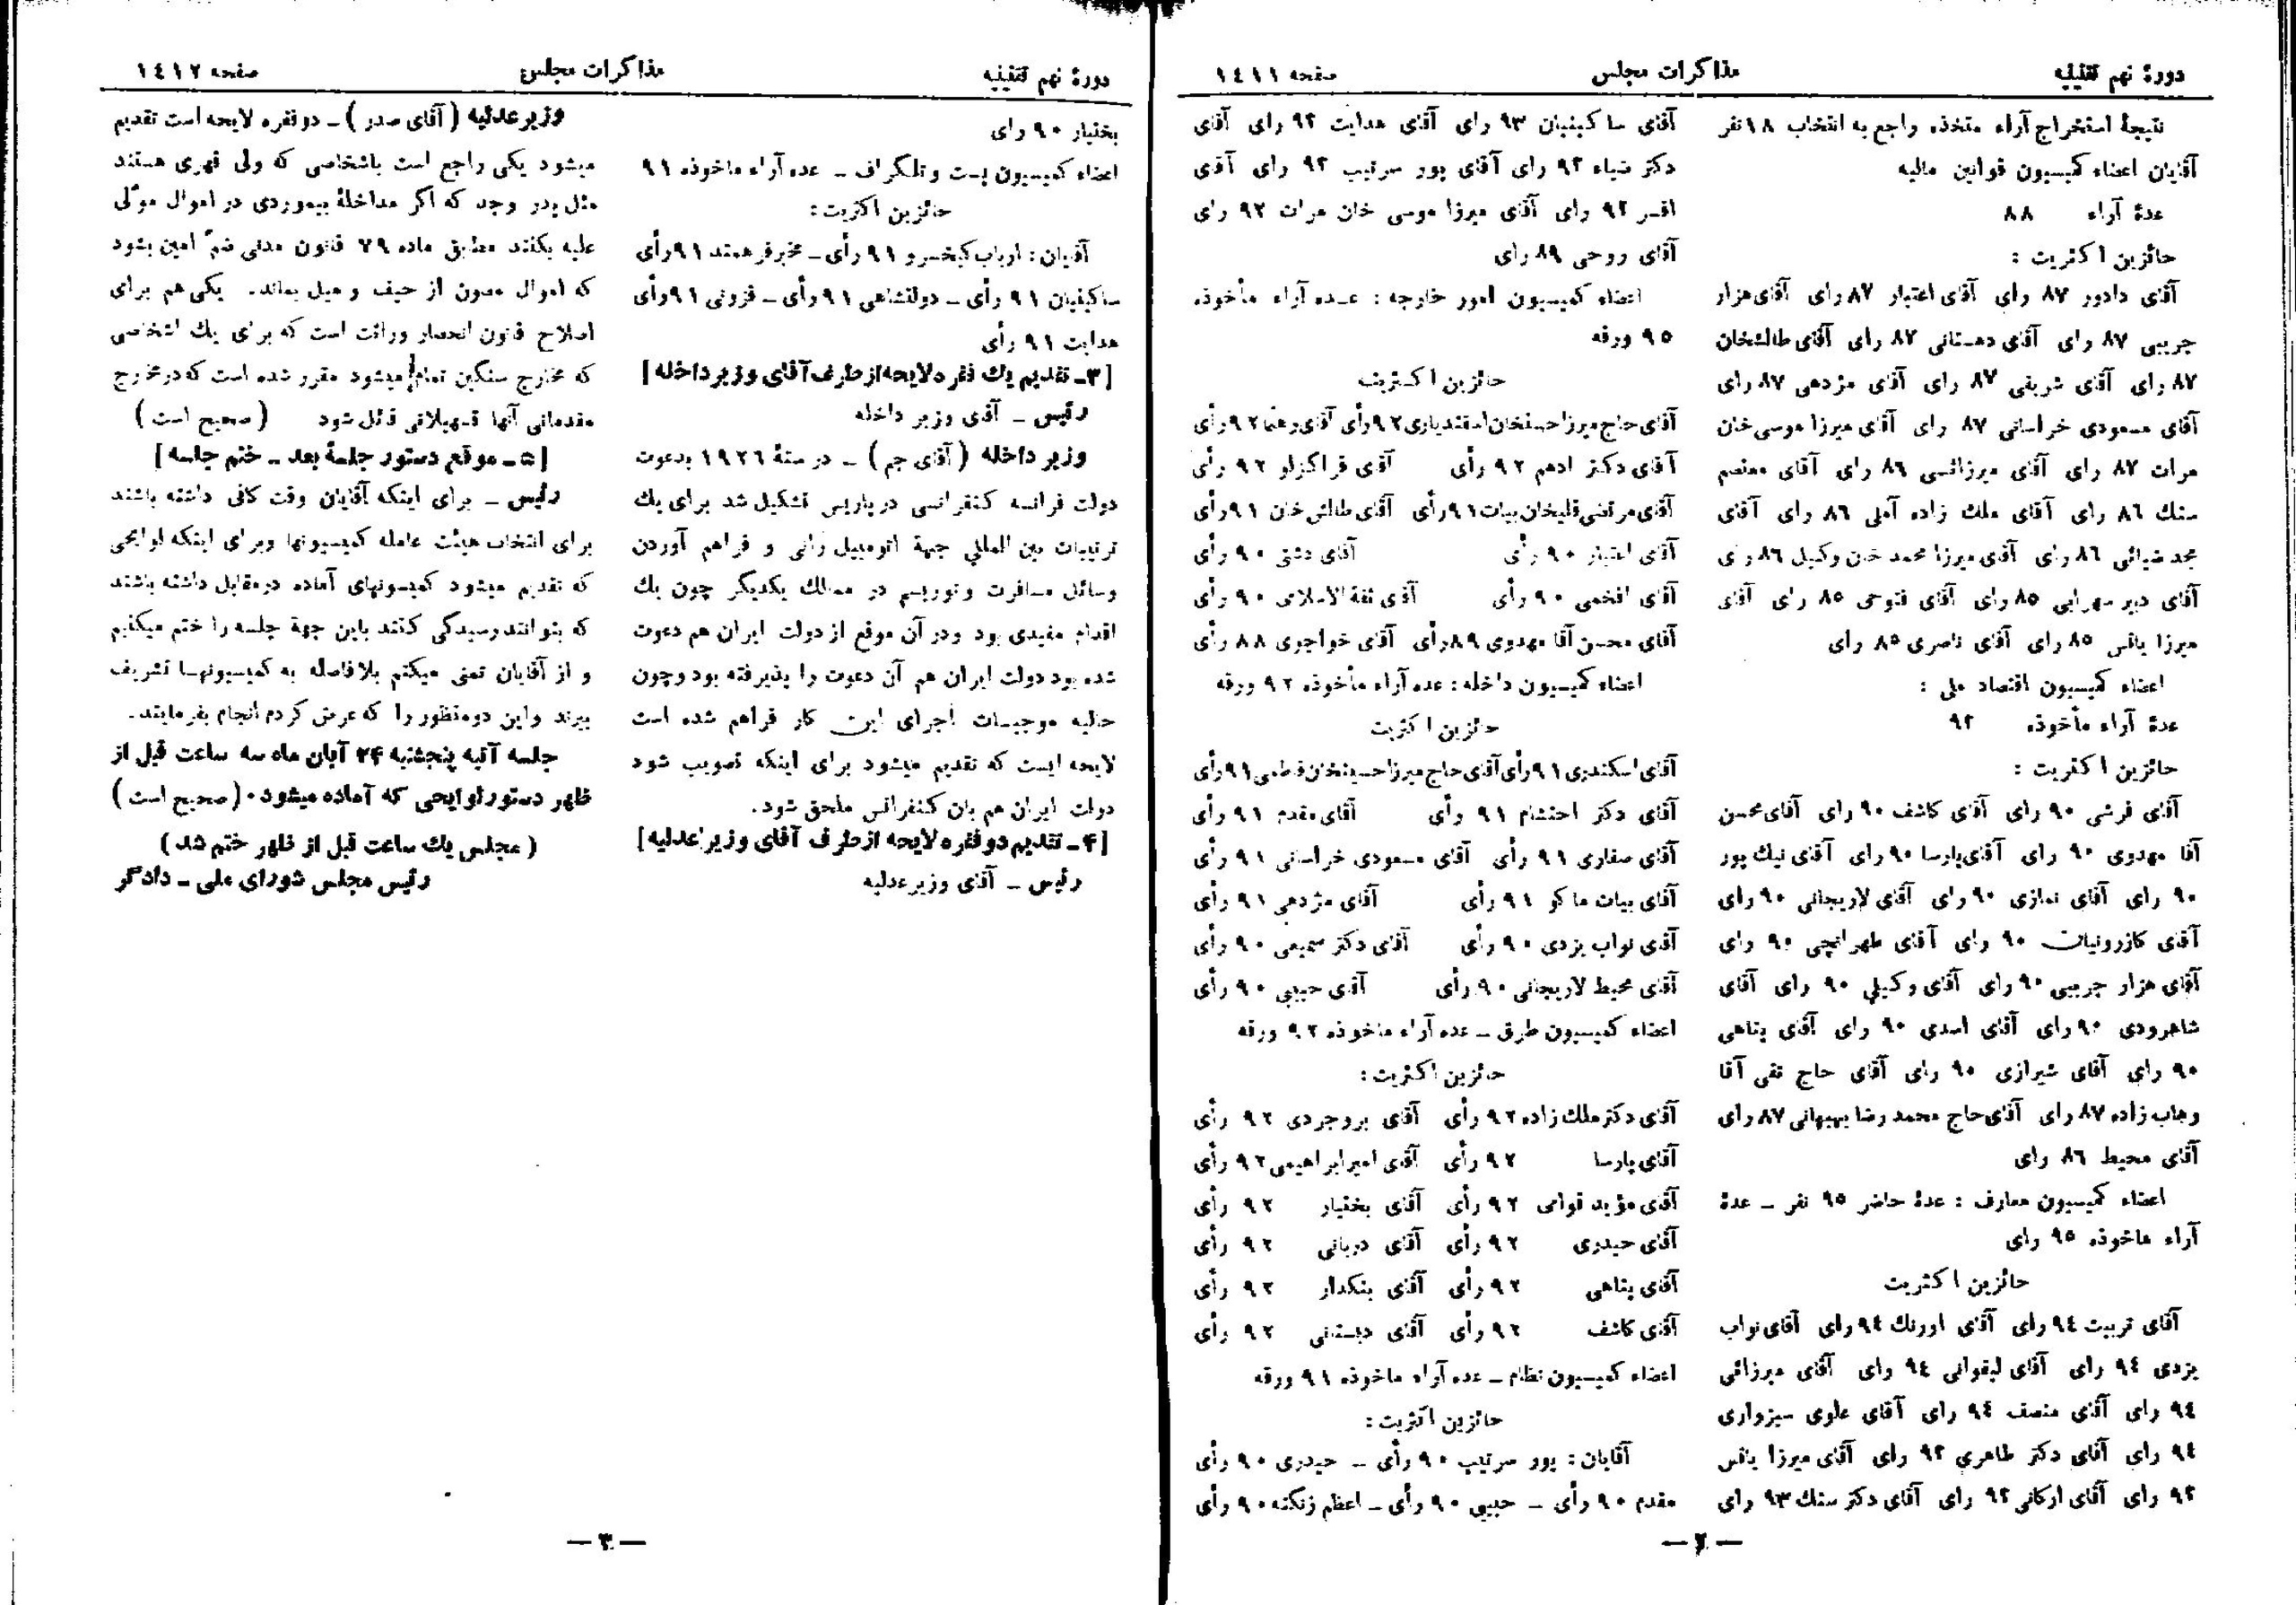 دورهٔ نهم تقنینیه
مذاکرات مجلس
صفحه ۱٤۱۱
نتیجهٔ استخراج آراء متخذه راجع به انتخاب ۱۸ نفر
آقایان اعضاء کمیسیون قوانین مالیه
عدهٔ آراء ۸۸
حائزین اکثریت :
آقای دادور ۸۷ رای آقای اعتبار ۸۷ رای آقای هزار
جریبی ۸۷ رای آقای دهستانی ۸۷ رای آقای طالشخان
۸۷ رای آقای شریفی ۸۷ رای آقای مژدهی ۸۷ رای
آقای مسعودی خراسانی ۸۷ رای آقای میرزا موسی خان
مرآت ۸۷ رای آقای میرزائی ۸٦ رای آقای معتصم
سنك ۸٦ رای آقای ملك زاده آملی ۸٦ رای آقای
مجد ضیائی ۸٦ رای آقای میرزا محمد خان وکیل ۸٦ رای
آقای دبیر سهرابی ۸٥ رای آقای فتوحی ۸٥ رای آقای
میرزا یانس ۸٥ رای آقای ناصری ۸٥ رای
اعضاء کمیسیون اقتصاد ملی :
عدهٔ آراء مأخوذه ۹۲
حائزین اکثریت :
آقای قرشی ۹۰ رای آقای کاشف ۹۰ رای آقای محسن
آقا مهدوی ۹۰ رای آقای پارسا ۹۰ رای آقای نیك پور
۹۰ رای آقای نمازی ۹۰ رای آقای لاریجانی ۹۰ رای
آقای کازرونیان ۹۰ رای آقای طهرانچی ۹۰ رای
آقای هزار جریبی ۹۰ رای آقای وکیلی ۹۰ رای آقای
شاهرودی ۹۰ رای آقای اسدی ۹۰ رای آقای پناهی
۹۰ رای آقای شیرازی ۹۰ رای آقای حاج تقی آقا
وهاب زاده ۸۷ رای آقای حاج محمد رضا بهبهانی ۸۷ رای
آقای محیط ۸٦ رای
اعضاء کمیسیون معارف : عدهٔ حاضر ۹٥ نفر ــ عدهٔ
آراء ماخوذه ۹٥ رای
حائزین اکثریت
آقای تربیت ۹٤ رای آقای اورنك ۹٤ رای آقای نواب
یزدی ۹٤ رای آقای لیقوانی ۹٤ رای آقای میرزائی
۹٤ رای آقای منصف ۹٤ رای آقای علوی سبزواری
۹٤ رای آقای دکتر طاهری ۹۲ رای آقای میرزا یانس
۹۲ رای آقای ارکانی ۹۲ رای آقای دکتر سنك ۹۳ رای
آقای ساکینیان ۹۳ رای آقای هدایت ۹۲ رای آقای
دکتر ضیاء ۹۲ رای آقای پور سرتیپ ۹۲ رای آقای
افسر ۹۲ رای آقای میرزا موسی خان مرآت ۹۲ رای
آقای روحی ۸۹ رای
اعضاء کمیسیون امور خارجه : عده آراء مأخوذه
۹٥ ورقه
حائزین اکثریت
آقای حاج میرزا حسنخان اسفندیاری ۹۲ رأی آقای رهنما ۹۲ رأی
آقای دکتر ادهم ۹۲ رأی آقای قراگزلو ۹۲ رأی
آقای مرتضی قلیخان بیات ۹۱ رأی آقای طالش خان ۹۱ رأی
آقای اعتبار ۹۰ رأی آقای دشتی ۹۰ رأی
آقای افخمی ۹۰ رأی آقای ثقة الاسلامی ۹۰ رأی
آقای محسن آقا مهدوی ۸۹ رأی آقای خواجوی ۸۸ رأی
اعضاء کمیسیون داخله : عده آراء مأخوذه ۹۲ ورقه
حائزین اکثریت
آقای اسکندری ۹۱ رأی آقای حاج میرزا حسینخان فاطمی ۹۱ رأی
آقای دکتر احتشام ۹۱ رأی آقای مقدم ۹۱ رأی
آقای صفاری ۹۱ رأی آقای مسعودی خراسانی ۹۱ رأی
آقای بیات ماکو ۹۱ رأی آقای مژدهی ۹۱ رأی
آقای نواب یزدی ۹۰ رأی آقای دکتر سمیعی ۹۰ رأی
آقای محیط لاریجانی ۹۰ رأی آقای حبیبی ۹۰ رأی
اعضاء کمیسیون طرق ــ عده آراء ماخوذه ۹۲ ورقه
حائزین اکثریت :
آقای دکتر ملك زاده ۹۲ رأی آقای بروجردی ۹۲ رأی
آقای پارسا ۹۲ رأی آقای امیر ابراهیمی ۹۲ رأی
آقای مؤید قوامی ۹۲ رأی آقای بختیار ۹۲ رأی
آقای حیدری ۹۲ رأی آقای دربانی ۹۲ رأی
آقای پناهی ۹۲ رأی آقای بنکدار ۹۲ رأی
آقای کاشف ۹۲ رأی آقای دبستانی ۹۲ رأی
اعضاء کمیسیون نظام ــ عده آراء ماخوذه ۹۱ ورقه
حائزین اکثریت :
آقایان : پور سرتیپ ۹۰ رأی ــ حیدری ۹۰ رأی
مقدم ۹۰ رأی ــ حبیبی ۹۰ رأی ــ اعظم زنگنه ۹۰ رأی
— ۲ —
دورهٔ نهم تقنینیه
مذاکرات مجلس
صفحه ۱٤۱۲
بختیار ۹۰ رای
اعضاء کمیسیون پست و تلگراف ــ عده آراء ماخوذه ۹۱
حائزین اکثریت :
آقایان : ارباب کیخسرو ۹۱ رأی ــ مخبر فرهمند ۹۱ رأی
ساکینیان ۹۱ رأی ــ دولتشاهی ۹۱ رأی ــ قزونی ۹۱ رأی
هدایت ۹۱ رأی
[ ۳ــ تقدیم یك فقره لایحه از طرف آقای وزیر داخله ]
رئیس ــ آقای وزیر داخله
وزیر داخله ( آقای جم ) ــ در سنهٔ ۱۹۲٦ بدعوت
دولت فرانسه کنفرانسی در پاریس تشکیل شد برای یك
ترتیبات بین المللی جهة اتومبیل رانی و فراهم آوردن
وسائل مسافرت و توریسم در ممالك یکدیگر چون یك
اقدام مفیدی بود و در آن موقع از دولت ایران هم دعوت
شده بود دولت ایران هم آن دعوت را پذیرفته بود و چون
حالیه موجبات اجرای این کار فراهم شده است
لایحه ایست که تقدیم میشود برای اینکه تصویب شود
دولت ایران هم بان کنفرانس ملحق شود.
[ ۴ــ تقدیم دو فقره لایحه از طرف آقای وزیر عدلیه ]
رئیس ــ آقای وزیر عدلیه
وزیر عدلیه ( آقای صدر ) ــ دو فقره لایحه است تقدیم
میشود یکی راجع است باشخاصی که ولی قهری هستند
مثل پدر وجد که اگر مداخلهٔ بیموردی در اموال مولّی
علیه بکنند مطابق ماده ۷۹ قانون مدنی ضمّ امین بشود
که اموال مصون از حیف و میل بماند. یکی هم برای
اصلاح قانون انحصار وراثت است که برای یك اشخاصی
که مخارج سنگین تمام میشود مقرر شده است که در مخارج
مقدماتی آنها تسهیلاتی قائل شود ( صحیح است )
[ ۵ــ موقع دستور جلسهٔ بعد ــ ختم جلسه ]
رئیس ــ برای اینکه آقایان وقت کافی داشته باشند
برای انتخاب هیئت عامله کمیسیونها وبرای اینکه لوایحی
که تقدیم میشود کمیسونهای آماده در مقابل داشته باشند
که بتوانند رسیدگی کنند باین جهة جلسه را ختم میکنیم
و از آقایان تمنی میکنم بلافاصله به کمیسیونها تشریف
ببرند واین دو منظور را که عرض کردم انجام بفرمایند.
جلسه آتیه پنجشنبه ۲۴ آبان ماه سه ساعت قبل از
ظهر دستور لوایحی که آماده میشود. ( صحیح است )
( مجلس یك ساعت قبل از ظهر ختم شد )
رئیس مجلس شورای ملی ــ دادگر
— ۳ —